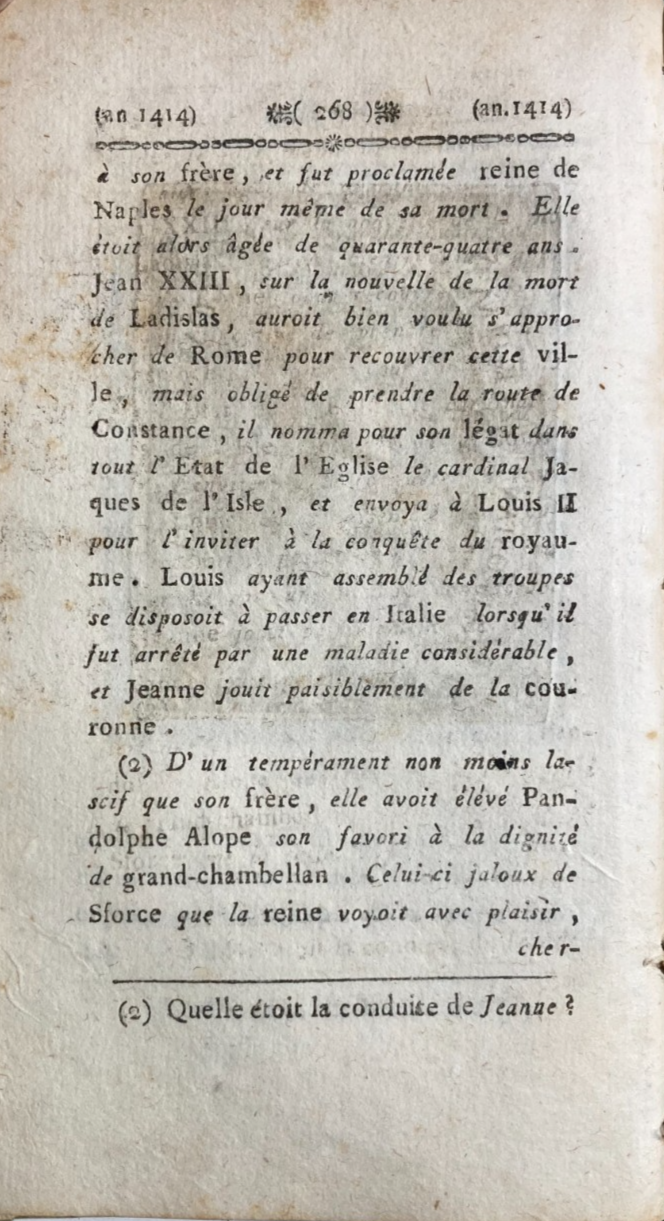 (an 1414) ( 268 ) (an.1414)
à son frère, et fut proclamée reine de
Naples le jour même de sa mort. Elle
étoit alors âgée de quarante-quatre ans.
Jean XXIII, sur la nouvelle de la mort
de Ladislas, auroit bien voulu s'appro-
cher de Rome pour recouvrer cette vil-
le, mais obligé de prendre la route de
Constance, il nomma pour son légat dans
tout l'Etat de l'Eglise le cardinal Ja-
ques de l'Isle, et envoya à Louis II
pour l'inviter à la conquête du royau-
me. Louis ayant assemblé des troupes
se disposoit à passer en Italie lorsqu'il
fut arrêté par une maladie considérable,
et Jeanne jouit paisiblement de la cou-
ronne.
(2) D'un tempérament non moins la-
scif que son frère, elle avoit élévé Pan-
dolphe Alope son favori à la dignité
de grand-chambellan. Celui-ci jaloux de
Sforce que la reine voyoit avec plaisir,
cher-
(2) Quelle étoit la conduite de Jeanne?